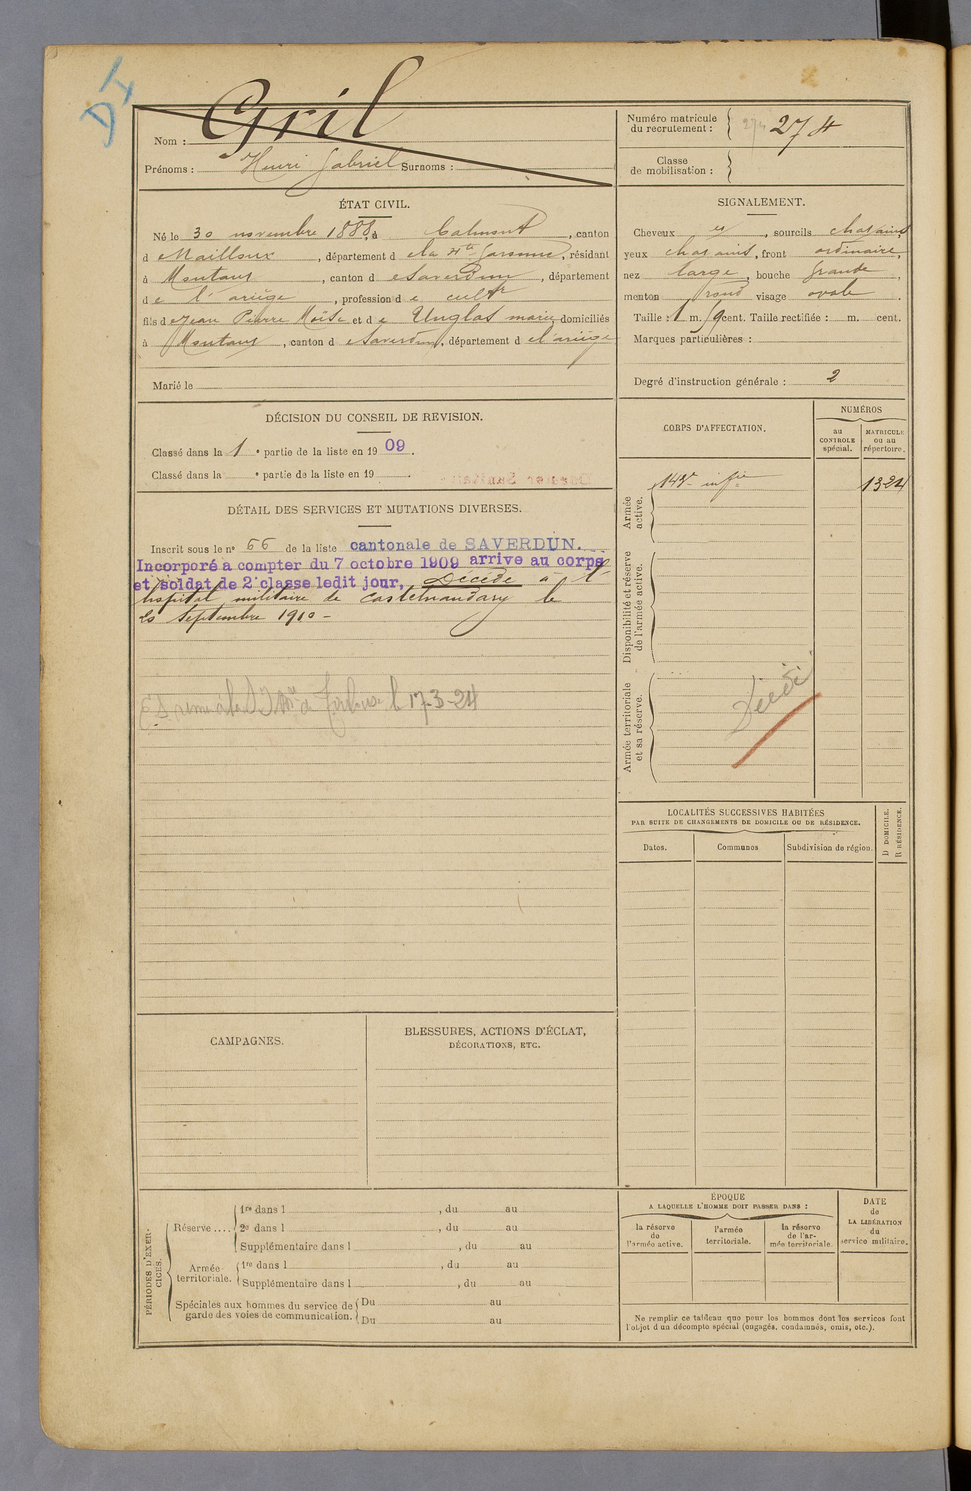 DI
Nom : Gril
Prénoms : Henri Gabriel Surnoms :
Numéro matricule du recrutement : 274 274
Classe de mobilisation :
ÉTAT CIVIL.
Né le 30 novembre 1888, à Calmont, canton
d e Nailloux, département d e la Hte Garonne, résidant
à Montaut, canton d e Saverdun, département
d e l'ariège, profession d e cultr
fils d e Jean Pierre Moïse et d e Unglas marie domiciliés
à Montaut, canton d e Saverdun, département d e l'ariège
Marié le
SIGNALEMENT.
Cheveux et, sourcils chatains
yeux chatains, front ordinaire,
nez large, bouche grande,
menton rond visage ovale.
Taille : 1 m. cent. Taille rectifiée : m. cent.
Marques particulières :
Degré d'instruction générale : 2
DÉCISION DU CONSEIL DE REVISION.
Classé dans la 1 e partie de la liste en 1909.
Classé dans la e partie de la liste en 19
CORPS D'AFFECTATION.
NUMÉROS
au CONTROLE spécial.
MATRICULE ou au répertoire.
Armée active.
infie 1324
Disponibilité et réserve de l'armée active.
Armée territoriale et sa réserve.
Décédé
DÉTAIL DES SERVICES ET MUTATIONS DIVERSES.
Inscrit sous le no 66 de la liste cantonale de SAVERDUN.
Incorporé a compter du 7 octobre 1909 arrive au corps
et soldat de 2e classe ledit jour, Décédé à l'
hopital militaire de Castelnaudary le
20 Septembre 1910 -
le 17-3-24
LOCALITÉS SUCCESSIVES HABITÉES
PAR SUITE DE CHANGEMENTS DE DOMICILE OU DE RÉSIDENCE.
Dates.
Communes
Subdivision de région.
D DOMICILE.
R RÉSIDENCE.
CAMPAGNES.
BLESSURES, ACTIONS D'ÉCLAT,
DÉCORATIONS, ETC.
PÉRIODES D'EXERCICES.
Réserve ....
1re dans l , du au
2e dans l , du au
Supplémentaire dans l , du au
Armée territoriale.
1re dans l , du au
Supplémentaire dans l , du au
Spéciales aux hommes du service de garde des voies de communication.
Du au
Du au
ÉPOQUE
A LAQUELLE L'HOMME DOIT PASSER DANS :
la réserve de l'armée active.
l'armée territoriale.
la réserve de l'armée territoriale.
DATE de LA LIBÉRATION du service militaire.
Ne remplir ce tableau que pour les hommes dont les services font
l'objet d'un décompte spécial (engagés, condamnés, omis, etc.).